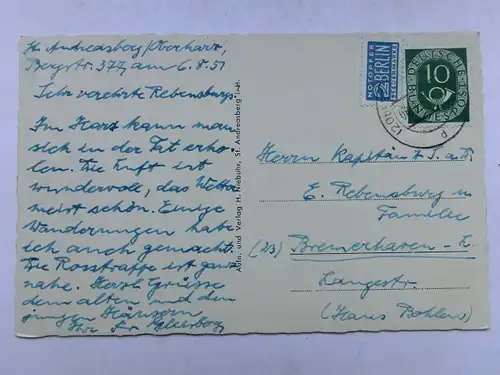 St. Andreasberg/Oberharz,
Bergstr. 377, am 6.8.51
Sehr verehrte Rebensburgs.
Im Harz kann man
sich in der Tat erho-
len. Die Luft ist
wundervoll, das Wetter
meist schön. Einige
Wanderungen habe
ich auch gemacht.
Die Rosstrappe ist ganz
nahe. Herzl. Grüsse
dem alten und den
jungen Häusern
Ihr Fr.
Aufn. und Verlag H. Niebuhr, St. Andreasberg i. H.
NOTOPFER
2 BERLIN
STEUERMARKE
DEUTSCHE BUNDESPOST
10
Herrn Kapitän z. S. a. D.
E. Rebensburg u.
Familie
(23) Bremerhaven-L.
Langestr.
(Haus Bohlen)